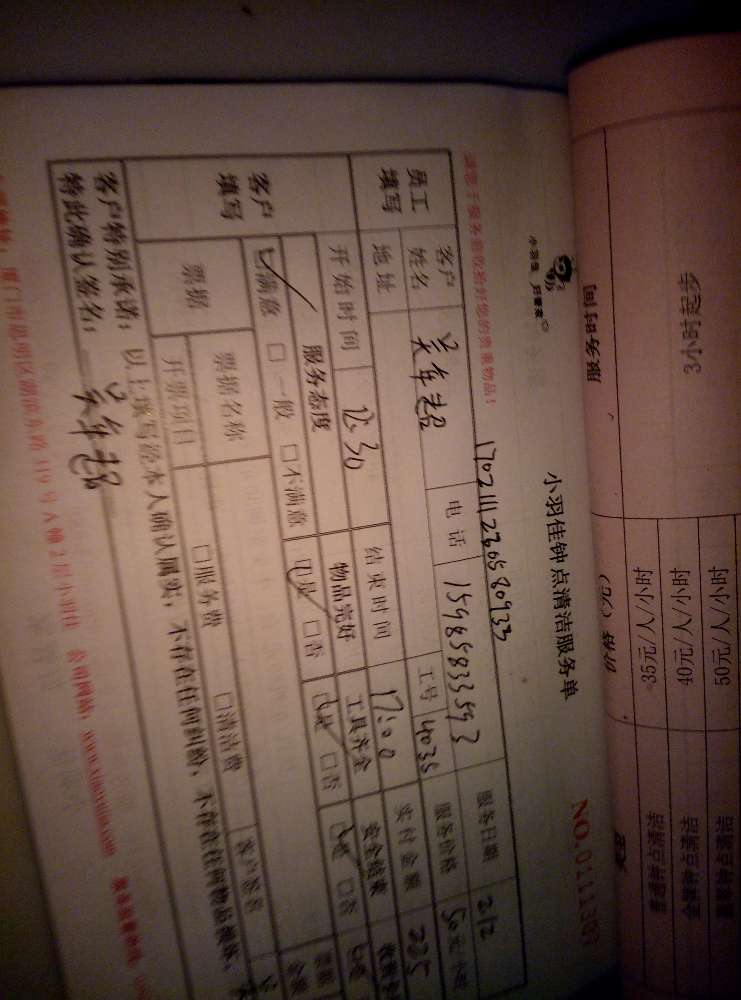 服务时间
价格（元）
3小时起步
35元/人/小时
普通钟点清洁
40元/人/小时
金牌钟点清洁
50元/人/小时
小羽佳钟点清洁服务单
NO.0111301
小羽佳 好管家
请您于服务前收拾好您的贵重物品！
1702111230580933
员工填写
客户姓名
吴年超
电话
15985833593
服务日期
2/2
地址
工号
4035
服务价格
50元/小时
开始时间
12:30
结束时间
17:00
实付金额
225
客户填写
服务态度
物品完好
工具齐全
安全结束
☑满意 □一般 □不满意
☑是 □否
☑是 □否
☑是 □否
票据
票据名称
开票项目
□服务费
□清洁费
客户签名
客户特别承诺：以上填写经本人确认属实，不存在任何纠纷，不存在任何物品损坏，
特此确认签名：
吴年超